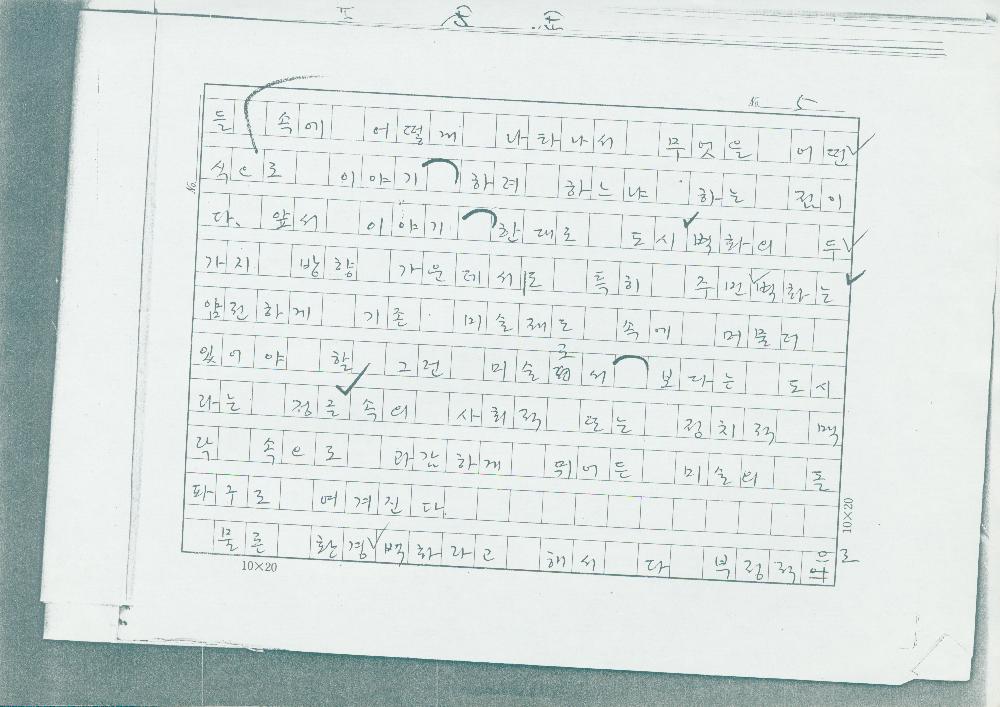 No. 5
들 속에 어떻게 나타나서 무엇을 어떤
식으로 이야기 하려 하느냐 하는 점이
다. 앞서 이야기 한대로 도시벽화의 두
가지 방향 가운데서도 특히 주민벽화는
얌전하게 기존 미술제도 속에 머물러
있어야 할 그런 미술로서 보다는 도시
라는 정글속의 사회적 또는 정치적 맥
락 속으로 과감하게 뛰어든 미술의 돌
파구로 여겨진다
물론 환경벽화라고 해서 다 부정적으로
10×20
10×20
No.